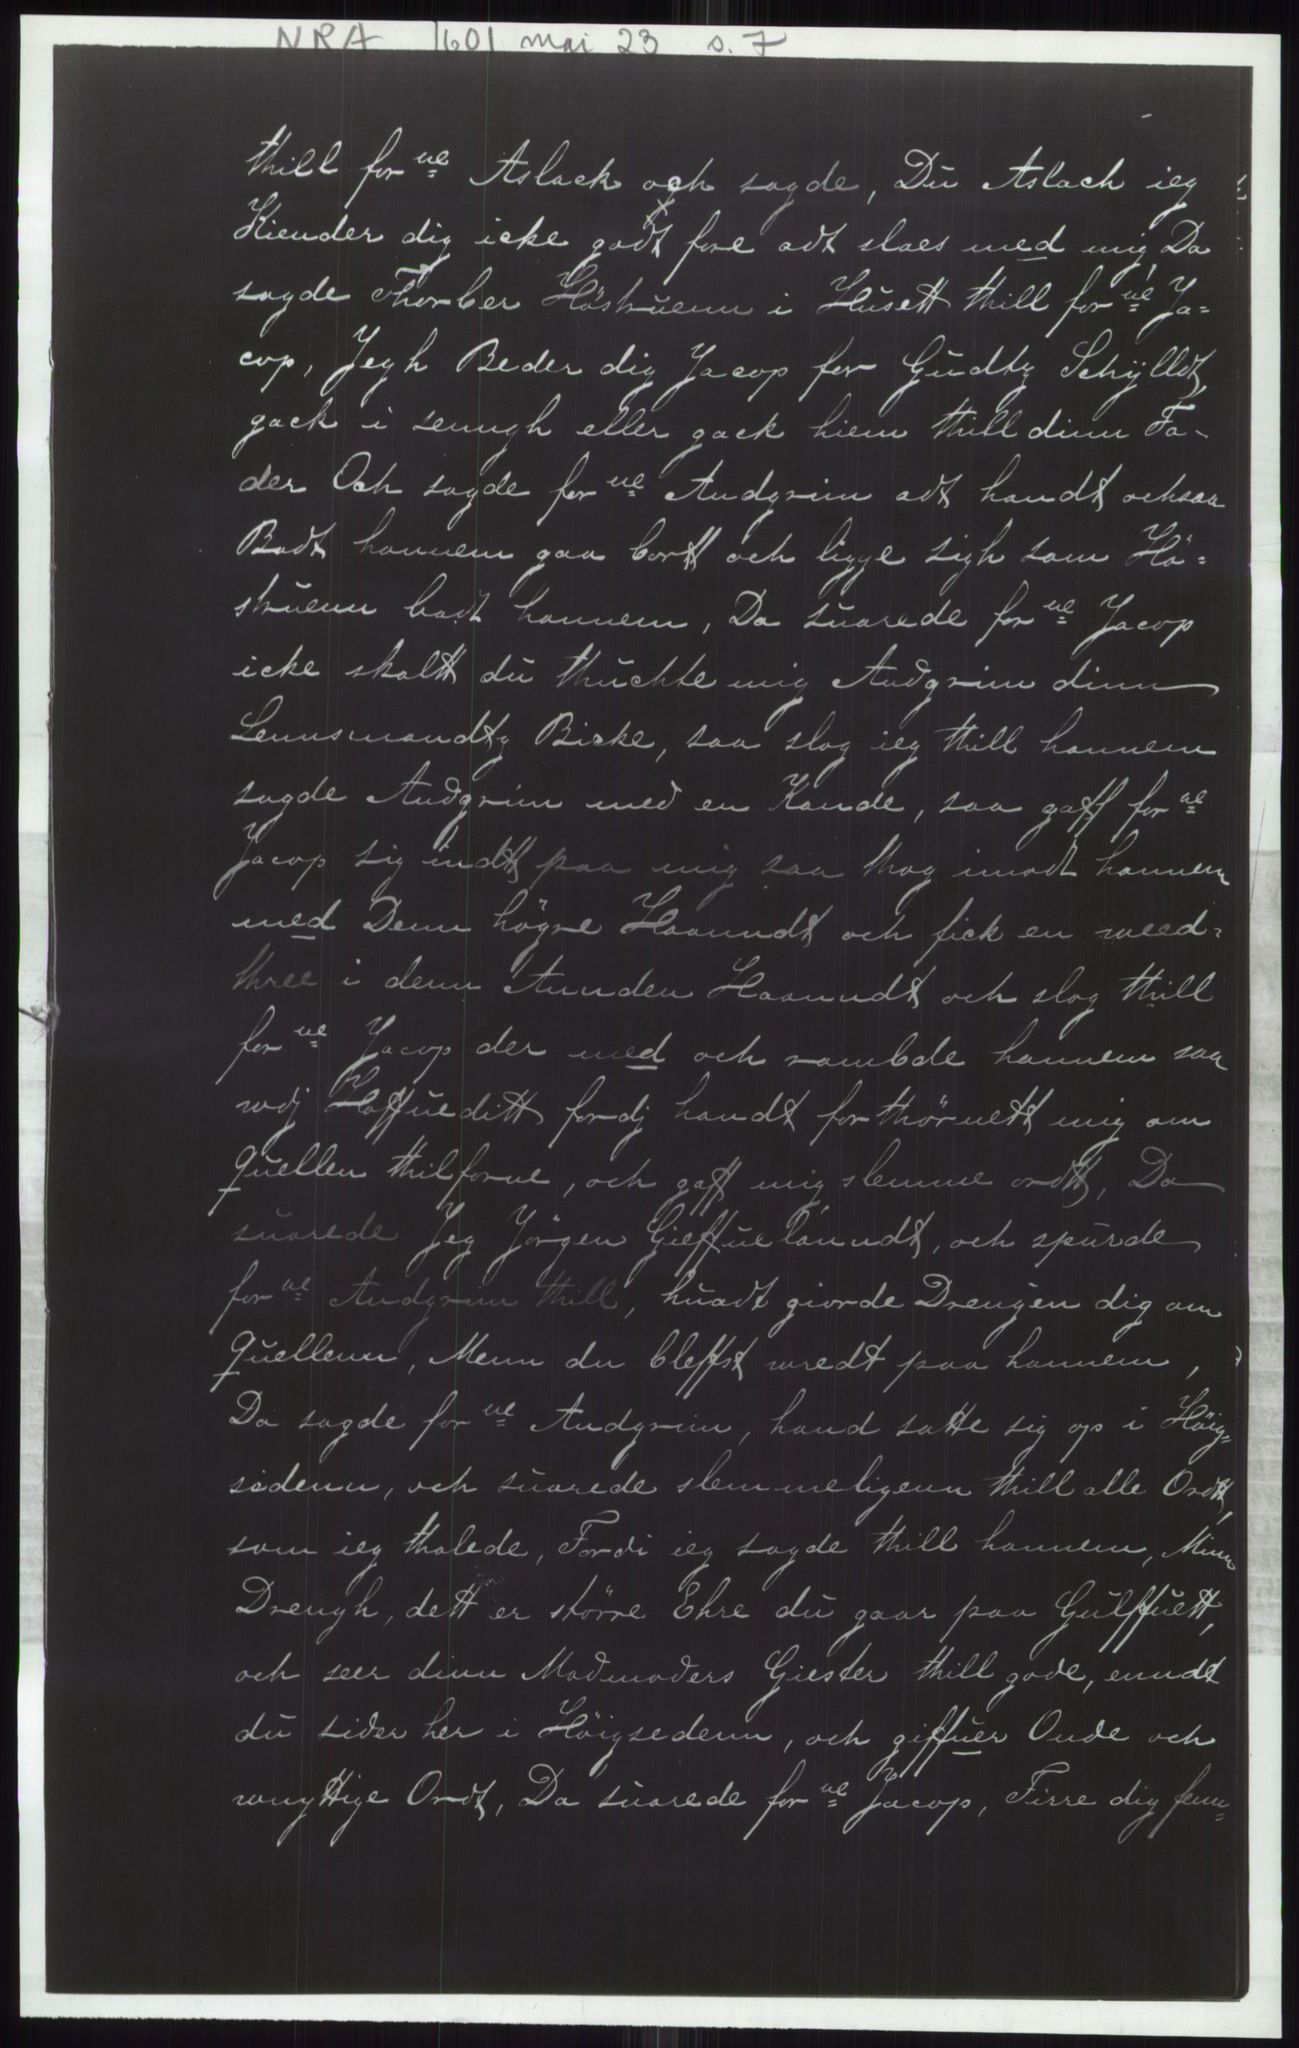 NRA 1601 mai 23 s. 7
thill forne Aslack och sagde, Du Aslach ieg
Kiender dig icke godt fore adt slaes med mig, Da
sagde Thorber Höstruenn i Husett thill forne Ja=
cop, Jegh Beder dig Jacop for Gudtz Schÿlldt,
gack i sengh eller gack hiem thill dinn Fa-
der Och sagde forne Audgrim adt handt ochsaa
Badt hannem gaa bortt och ligge sigh som Hö=
struenn badt hannem, Da suarede forne Jacop
icke skaltt du thuchte mig Audgrim dinn
Lennsmandtz Bicke, saa slog ieg thill hannem
sagde Audgrim med en Kande, saa gaff forne
Jacop sig indt paa mig saa thog imodt hannem
med Denn högre Haanndt och fick en weed=
three i denn Annden Haanndt och slog thill
forne Jacop der med och rambde hannem saa
wdj Haffueditt fordj handt forthörnett mig om
quellen thilforne, och gaff mig slemme ordt, Da
suarede Jeg Jörgen Gieffuelanndt, och spurde
forne Audgrim thill, huadt giorde Drengen dig om
quellenn, Menn du bleffst wredt paa hannem,
Da sagde forne Audgrim, hand satte sig op i Höig=
sedenn, och suarede slemmeligenn thill alle Ordt,
som ieg thalede, Fordi ieg sagde thill hannem, Minn
Drengh, dett er större Ehre du gaar paa Gulffuett,
och seer dinn Madmoders Giester thill gode, enndt
du sider her i Höigsedenn, och giffuer Onde och
wnyttige Ordt, Da suarede forne Jacop, Firre dig fenn=